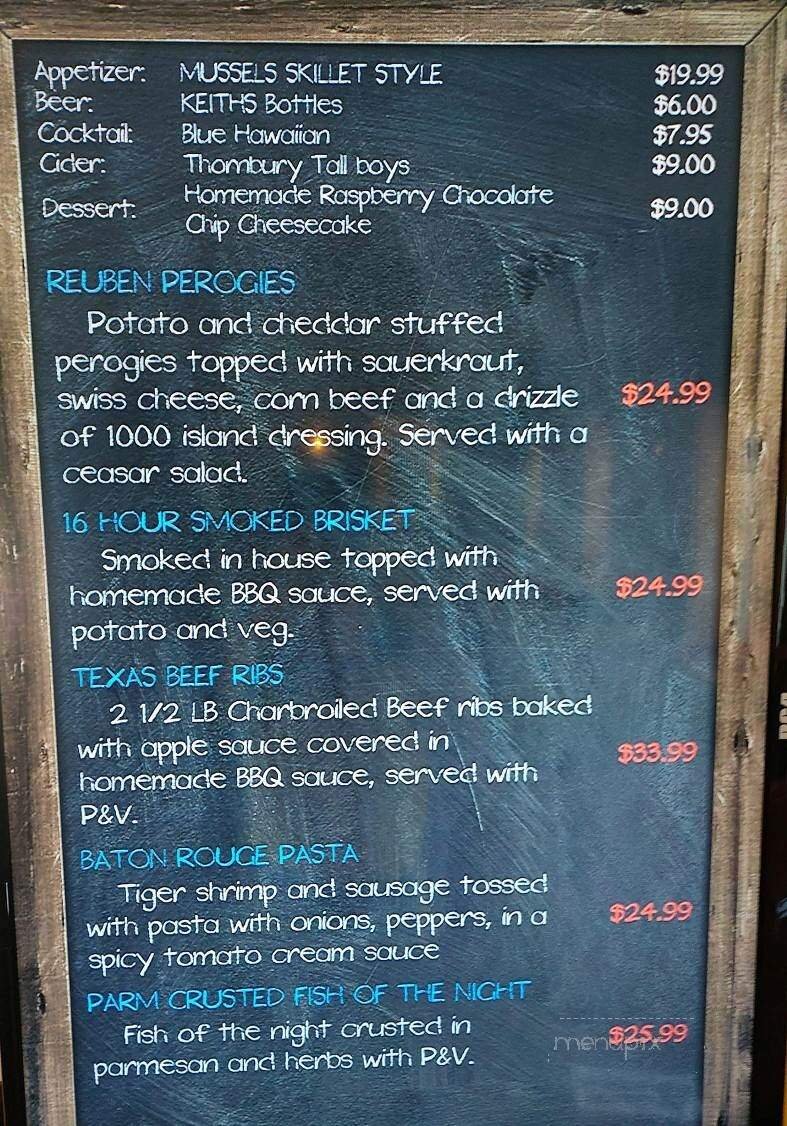 Appetizer: MUSSELS SKILLET STYLE $19.99
Beer: KEITHS Bottles $6.00
Cocktail: Blue Hawaiian $7.95
Cider: Thornbury Tall boys $9.00
Dessert: Homemade Raspberry Chocolate $9.00
Chip Cheesecake
REUBEN PEROGIES
Potato and cheddar stuffed
perogies topped with sauerkraut,
swiss cheese, corn beef and a drizzle $24.99
of 1000 island dressing. Served with a
ceasar salad.
16 HOUR SMOKED BRISKET
Smoked in house topped with
homemade BBQ sauce, served with $24.99
potato and veg.
TEXAS BEEF RIBS
2 1/2 LB Charbroiled Beef ribs baked
with apple sauce covered in $33.99
homemade BBQ sauce, served with
P&V.
BATON ROUGE PASTA
Tiger shrimp and sausage tossed
with pasta with onions, peppers, in a $24.99
spicy tomato cream sauce
PARM CRUSTED FISH OF THE NIGHT
Fish of the night crusted in $25.99
parmesan and herbs with P&V.
menupix